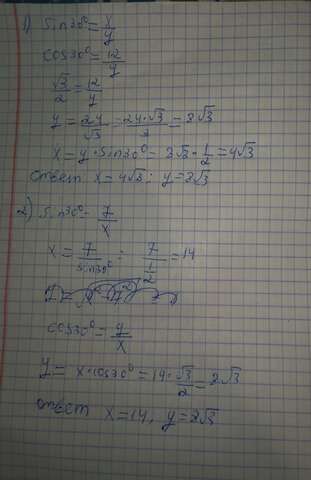 1) sin30° = x/y
cos30° = 12/y
√3/2 = 12/y
y = 24/√3 = 24·√3/3 = 8√3
x = y · sin30° = 8√3 · 1/2 = 4√3
ответ x = 4√3; y = 8√3
2) sin30° = 7/x
x = 7/sin30° = 7/(1/2) = 14
cos30° = y/x
y = x·cos30° = 14 · √3/2 = 2√3
ответ x = 14, y = 2√3